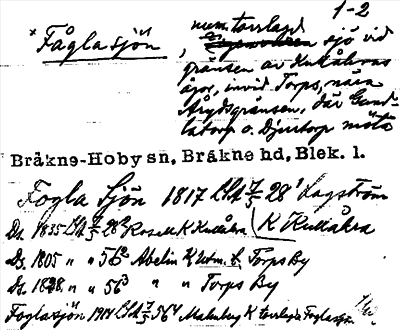 1-2
* Fåglasjön, num. torrlagd
sjö vid
gränsen av Kullåkras
ägor, invid Torps, nära
Årydsgränsen, där Gund-
latorp o. Djurtorp möta
Bråkne-Hoby sn, Bråkne hd, Blek. l.
Fogla Sjön 1817 28¹ Lagström
Ds. 1835 28² Rosell K Kullåkra (K Kullåkra
Ds. 1805 " " 56² Abelin K Torps By
Ds. 1828 " " 56³ " " Torps By
Foglasjön 1914 56⁴ Malmberg K torrlagda Foglasjön